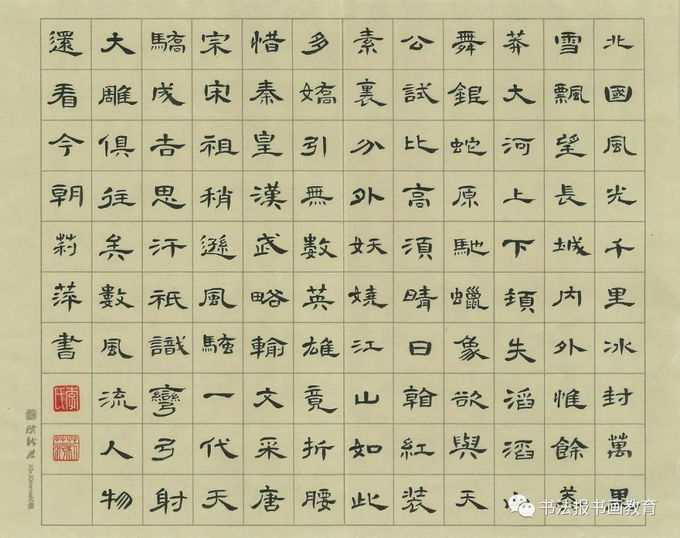 北國風光千里冰封萬里
雪飄望長城內外惟餘莽
莽大河上下頓失滔滔山
舞銀蛇原馳蠟象欲與天
公試比高須晴日翰紅裝
素裏分外妖嬈江山如此
多嬌引無數英雄竟折腰
惜秦皇漢武略輸文采唐
宗宋祖稍遜風騷一代天
驕成吉思汗祇識彎弓射
大雕俱往矣數風流人物
還看今朝莉萍書
书法报书画教育